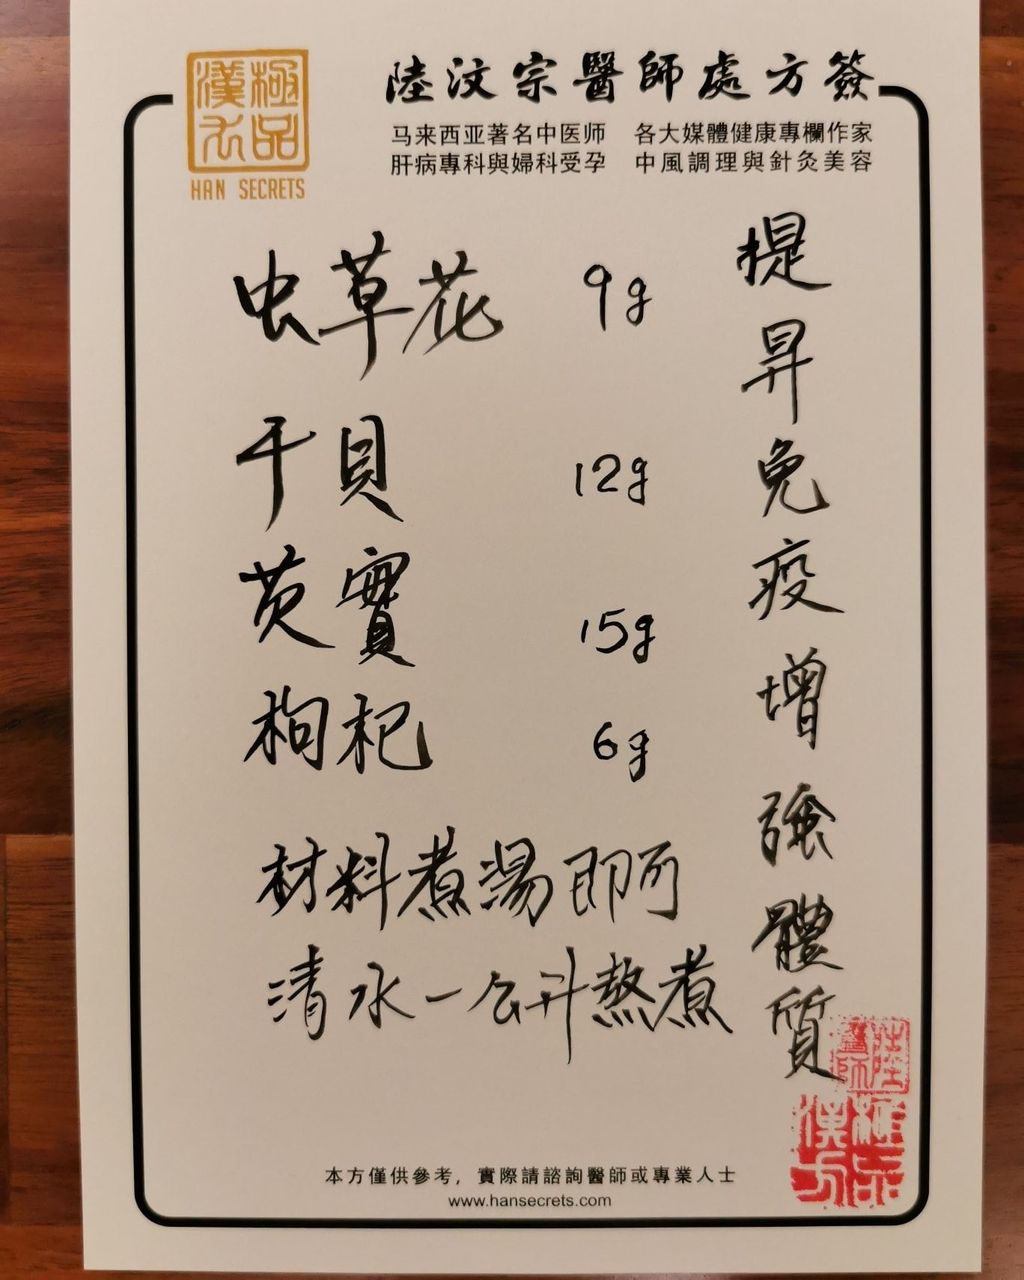 極品
漢方
HAN SECRETS
陸汶宗醫師處方簽
马来西亚著名中医师 各大媒體健康專欄作家
肝病專科與婦科受孕 中風調理與針灸美容
提昇免疫增強體質
虫草花 9g
干貝 12g
芡實 15g
枸杞 6g
材料煮湯即可
清水一公升熬煮
陸醫師
極品漢方
本方僅供參考，實際請諮詢醫師或專業人士
www.hansecrets.com